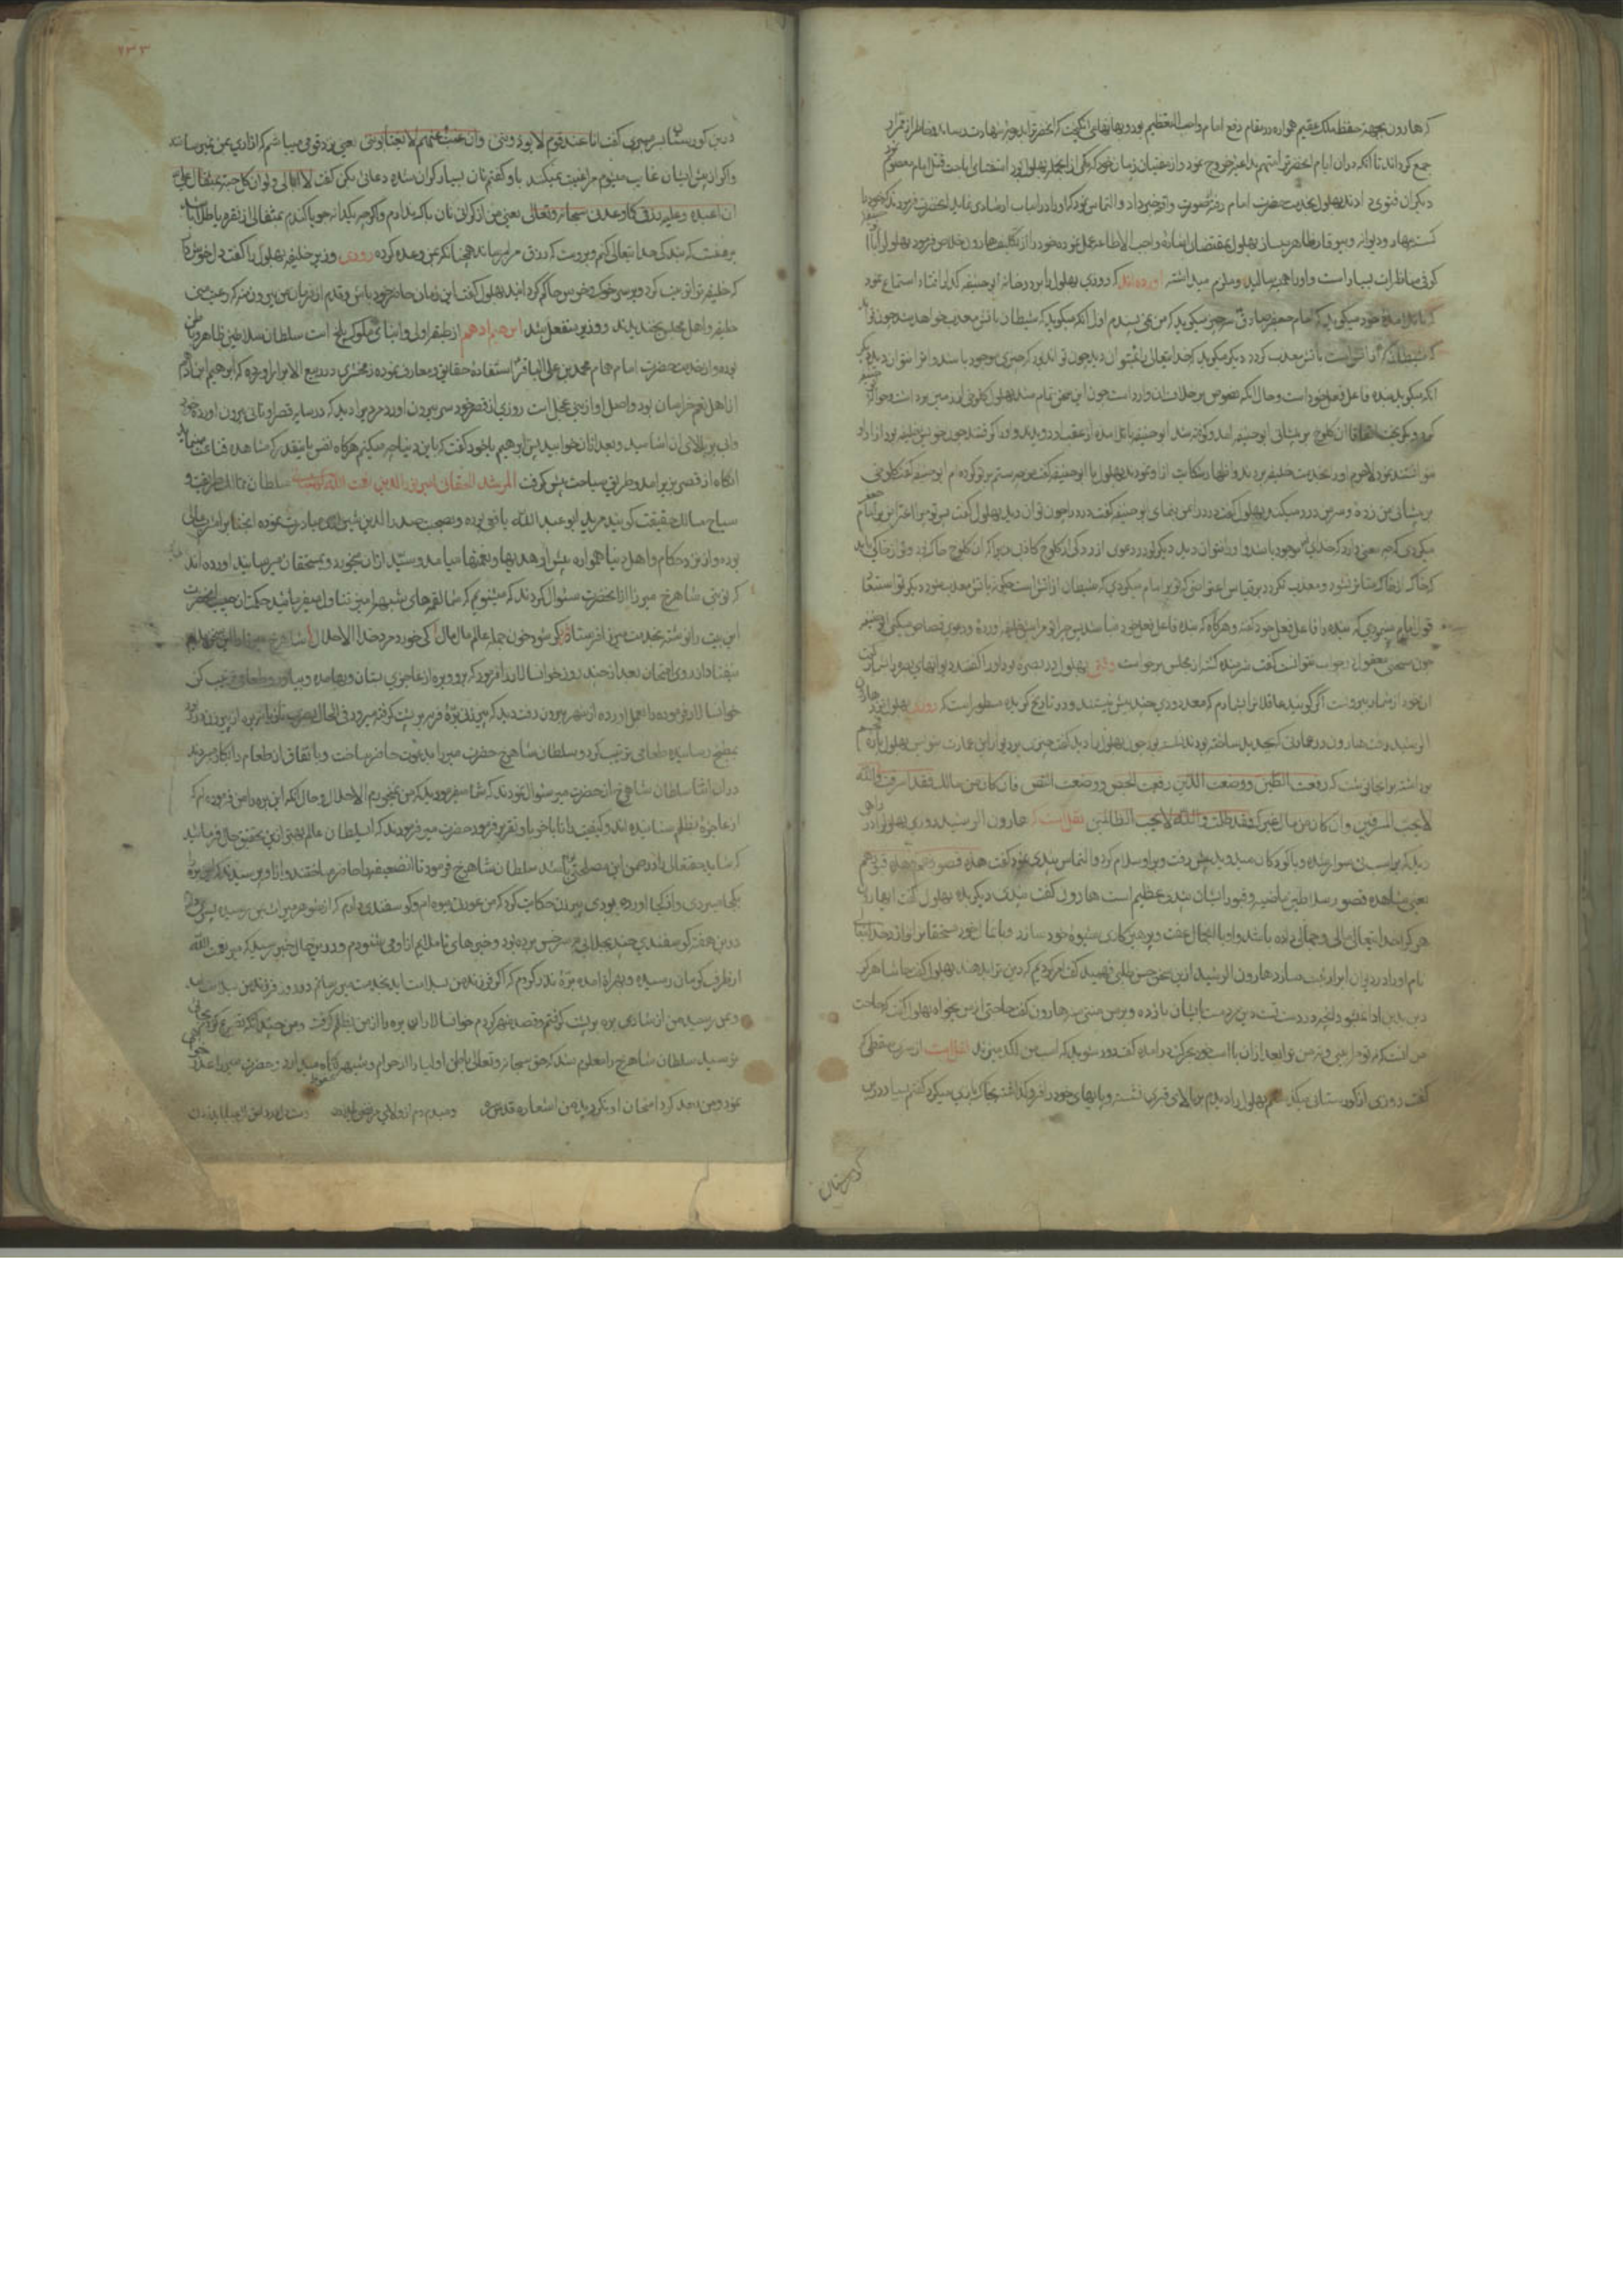 که هارون بجهة حفظ ملک عقیم همواره در مقام دفع امام واجب التعظیم بود و بهانهای انگیخت که انحضرترا بدرجه شهادت رساند
جمع کرداند تا آنکه دران ایام انحضرترا متهم بداعیه خروج نمود و از متقیان زمان خود که یکی از انجمله بهلول بود استفتای اباحت قتل امام معصوم نمود
دیکران فتوی دادند بهلول بخدمت حضرت امام رفته صورت واقعه خبر داد و التماس نمود که او را دراین باب ارشادی نماید انحضرت فرمودند که خود را
بهلول بمقتضای اشاره واجب الاطاعه عمل نموده خود را از تکلیف هارون خلاص فرمود بهلول را با
کوفی مناظرات بسیار است و او را همیشه ملزم میداشته آورده اند که روزی بهلول را بر در خانه ابو حنیفه گذر افتاد استماع نمود
که با تلامذه خود میکوید که امام جعفر صادق سه چیز میکوید که من نمی پسندم اول آنکه میکوید که شیطان باتش معذب خواهد شد چون تواند
که شیطان که از آتش است باتش معذب کردد دیکر میکوید که خدایتعالی را نمیتوان دید چون تواند بود که چیزی موجود باشد و او را نتوان دید دیکر
آنکه میکوید بنده فاعل فعل خود است و حال آنکه نصوص بر خلاف ان وارد است چون این سخن تمام شد بهلول کلوخی از زمین برداشت و حواله
کرد و بکریخت اتفاقا ان کلوخ بر پیشانی ابو حنیفه امد و کوفته شد ابو حنیفه با تلامذه از عقب او دویدند و او را کرفتند چون خویش خلیفه بود ازار او
نتوانستند نمود لاجرم او را بخدمت خلیفه بردند و اظهار شکایت از او نمودند بهلول با ابو حنیفه کفت چه ستم بر تو کرده ام ابو حنیفه کفت کلوخی
بر پیشانی من زده و سر من درد میکند بهلول کفت درد را بمن بنمای ابو حنیفه کفت درد را چون توان دید بهلول کفت پس تو چرا اعتراض بر امام جعفر
میکردی که چه معنی دارد که خدای موجود باشد و او را نتوان دید دیکر تو در دعوی ازردکی از کلوخ کاذبی زیرا که ان کلوخ خاک بود و تو از خاکی باید
که خاک از خاک متاثر نشود و معذب نکردد بر قیاس اعتراضی که تو بر امام میکردی که شیطان از آتش است چکونه باتش معذب شود دیکر تو استبعاد
قول امام مینمودی که بنده را فاعل فعل خود کفته و هرکاه که بنده فاعل فعل خود نباشد پس چرا تو مرا پیش خلیفه اورده و دعوی قصاص میکنی ابو حنیفه
چون سخن معقول را جواب نتوانست کفت شرمنده کشته از مجلس برخواست وقتی بهلول در بصره بود او را کفتند دیوانهای بصره را بشمار کفت
ان خود از شمار بیرونست اکر کویید عاقلانرا بشمارم که معدودی چند بیش نیستند و در تاریخ کزیده مسطور است که روزی بهلول نزد هارون
الرشید رفت هارون در عمارتی که بجدید ساخته بود نشسته بود چون بهلول را دید کفت چیزی بر دیوار این عمارت بنویس بهلول پاره فحم
برداشته بر انجا نوشت که رفعت الطین و وضعت الدین رفعت الجص و وضعت النص فان کان من مالک فقد اسرفت والله
لا یحب المسرفین وان کان من مال غیرک فقد ظلمت والله لا یحب الظالمین نقل است که هارون الرشید روزی بهلول را در راهی
دید که بر اسب نی سوار شده و با کودکان میدوید پیش رفت و بر او سلام کرد و التماس پندی نمود کفت هذه قصورهم وهذه قبورهم
یعنی مشاهده قصور سلاطین ماضیه و قبور ایشان پند عظیم است هارون کفت پندی دیکر بده بهلول کفت
هر کرا خدایتعالی مالی و جمالی داده باشد و او با انجمال عفت و پرهیزکاری شیوه خود سازد و با مال خود مستحقانرا نوازد خدایتعالی
نام او را در دیوان ابرار ثبت سازد هارون الرشید ازین سخن حسن طلبی فهمید کفت امر کردیم که دین ترا بدهند بهلول کفت حاشا هرکز
دین بدین ادا نمیشود انچه در دست تست دین مردمست بایشان باز ده و بر من منتی منه هارون کفت حاجتی از من بخواه بهلول کفت که حاجت
من انست که نه تو مرا بینی و نه من ترا بعد ازان پا اسب خود بحرکت درامده کفت دور شوید که اسب من لکد میزند نقل است از سری سقطی که
کفت روزی از کورستانی میکذشتم بهلول را دیدم بر بالای قبری نشسته و پایهای خود در قبر فرو کذاشته بخاک بازی میکرد کفتم بسیار درین
کورستان
۷۳۳
درین کورستان بسر میبری کفت انا عند قوم لا یؤذوننی وان غبت عنهم لا یغتابوننی یعنی نزد قومی میباشم که ازاری بمن نمیرسانند
و اکر از پیش ایشان غایب میشوم مرا غیبت نمیکنند باو کفتم نان بسیار کران شده دعائی بکن کفت لا ابالی ولو ان کل حبة بمثقال علی
ان اعبده وعلیه رزقی کما وعدنی سبحانه وتعالی یعنی من از کرانی نان باک ندارم و اکرچه یکدانه جو یا کندم بمثقالی از نقره یا طلا باشد
بر منست که بندکی خدایتعالی کنم و بر وست که رزق مرا برساند همچنانکه بمن وعده کرده روزی وزیر خلیفه بهلول را کفت دل خوش دار
که خلیفه ترا تربیت کرد و بر سر خوک و خرس حاکم کردانید بهلول کفت این زمان حاضر خود باش و قدم از فرمان من بیرون منه که رعیت منی
خلیفه و اهل مجلس بخندیدند و وزیر منفعل شد ابرهیم ادهم از طبقه اولی و ابنای ملوک بلخ است سلطان سلاطین ظاهر و باطن
بوده و از خدمت حضرت امام همام محمد بن علی الباقر استفاده حقایق و معارف نموده زمخشری در ربیع الابرار اورده که ابرهیم ابن ادهم
از اهل نعم خراسان بود و اصل او از بنی عجل است روزی از قصر خود سر بیرون اورد مردیرا دید که در سایه قصر او نانی بیرون اورده خورد
و ابی بر بالای ان اشامید و بعد ازان خوابید پس ابرهیم باخود کفت که باین دنیا چه میکنم هرکاه نفس باینقدر که مشاهده شد قناعت مینماید
انکاه از قصر بزیر امد و طریق سیاحت پیش کرفت المرشد الحقانی امیر نور الدین نعمت الله سلطان ممالک طریقت و
سیاح مسالک حقیقت کویند مرید ابو عبد الله یافعی بوده و بصحبت صدر الدین شیروانی مبادرت نموده انجنابرا مشربی عالی
بوده و از نزد حکام و اهل دنیا همواره پیش او هدیها و نعمتها میامد و سید ازان میخورد و بمستحقان میرسانید اورده اند
که نوبتی شاهرخ میرزا از انحضرت سئوال کردند که میشنوم که شما لقمهای شبهه امیز تناول میفرمایید حکمت ازین چیست انحضرت
این بیت را نوشته بخدمت میرزا فرستاد کر شود خون جمله عالم مال مال کی خورد مرد خدا الا حلال شاهرخ میرزا را این سخن ملایم
نیفتاد از روی امتحان بعد از چند روز خوانسالار را فرمود که برو و بره از عاجزی بستان و بها مده و بیاور و طعامی ترتیب کن
خوانسالار فرموده را بعمل اورده از شهر بیرون رفت دید که پیرزنی بره فربه بر پشت کرفته میرود فی الحال بضرب تازیانه بره از پیرزن کرفته
بمطبخ رسانیده طعامی ترتیب کرد و سلطان شاهرخ حضرت میر را بدعوت حاضر ساخت و باتفاق ازان طعام را بکار میبردند
دران اثنا سلطان شاهرخ از حضرت میر سئوال نمودند که شما میفرمودید که من نمیخورم الا حلال و حال آنکه این بره را من فرموده ام که
از عاجزه بظلم ستانده اند و کیفیت را تا باخر باو تقریر فرمود حضرت میر فرمودند که ای سلطان عالم بهتر ازین تحقیق حال فرمایید
که شاید حقتعالی را در ضمن این مصلحتی باشد سلطان شاهرخ فرمود تا انضعیفه را حاضر ساختند و از او پرسیدند که این بره
بکجا میبردی و از کجا اورده بودی پیرزن حکایت کرد که من عورت بیوه ام و کوسفندی دارم که از شوهر میراث بمن رسیده پسر من
درین هفته کوسفندی چند بجلابی به سرخس برده بود و خبرهای ناملایم از او می شنودم و درین حال خبر رسید که میر نعمت الله
از طرف کرمان رسیده و بهراة امده بره نذر کردم که اکر فرزند من بسلامت اید بخدمت میر رسانم و در روز فرزند من بسلامت امد
و بمن رسید من از شادی بره بر پشت کرفتم و قصد شهر کردم خوانسالار ان بره را از من بظلم کرفت و من چندانکه تضرع کردم بجائی
نرسید سلطان شاهرخ را معلوم شد که حق سبحانه و تعالی باطن اولیا را از حرام و شبهه نکاه میدارد و حضرت میر را عذر خواهی
نمود و من بعد کرد امتحان او نکردید من اشعاره قدس سره